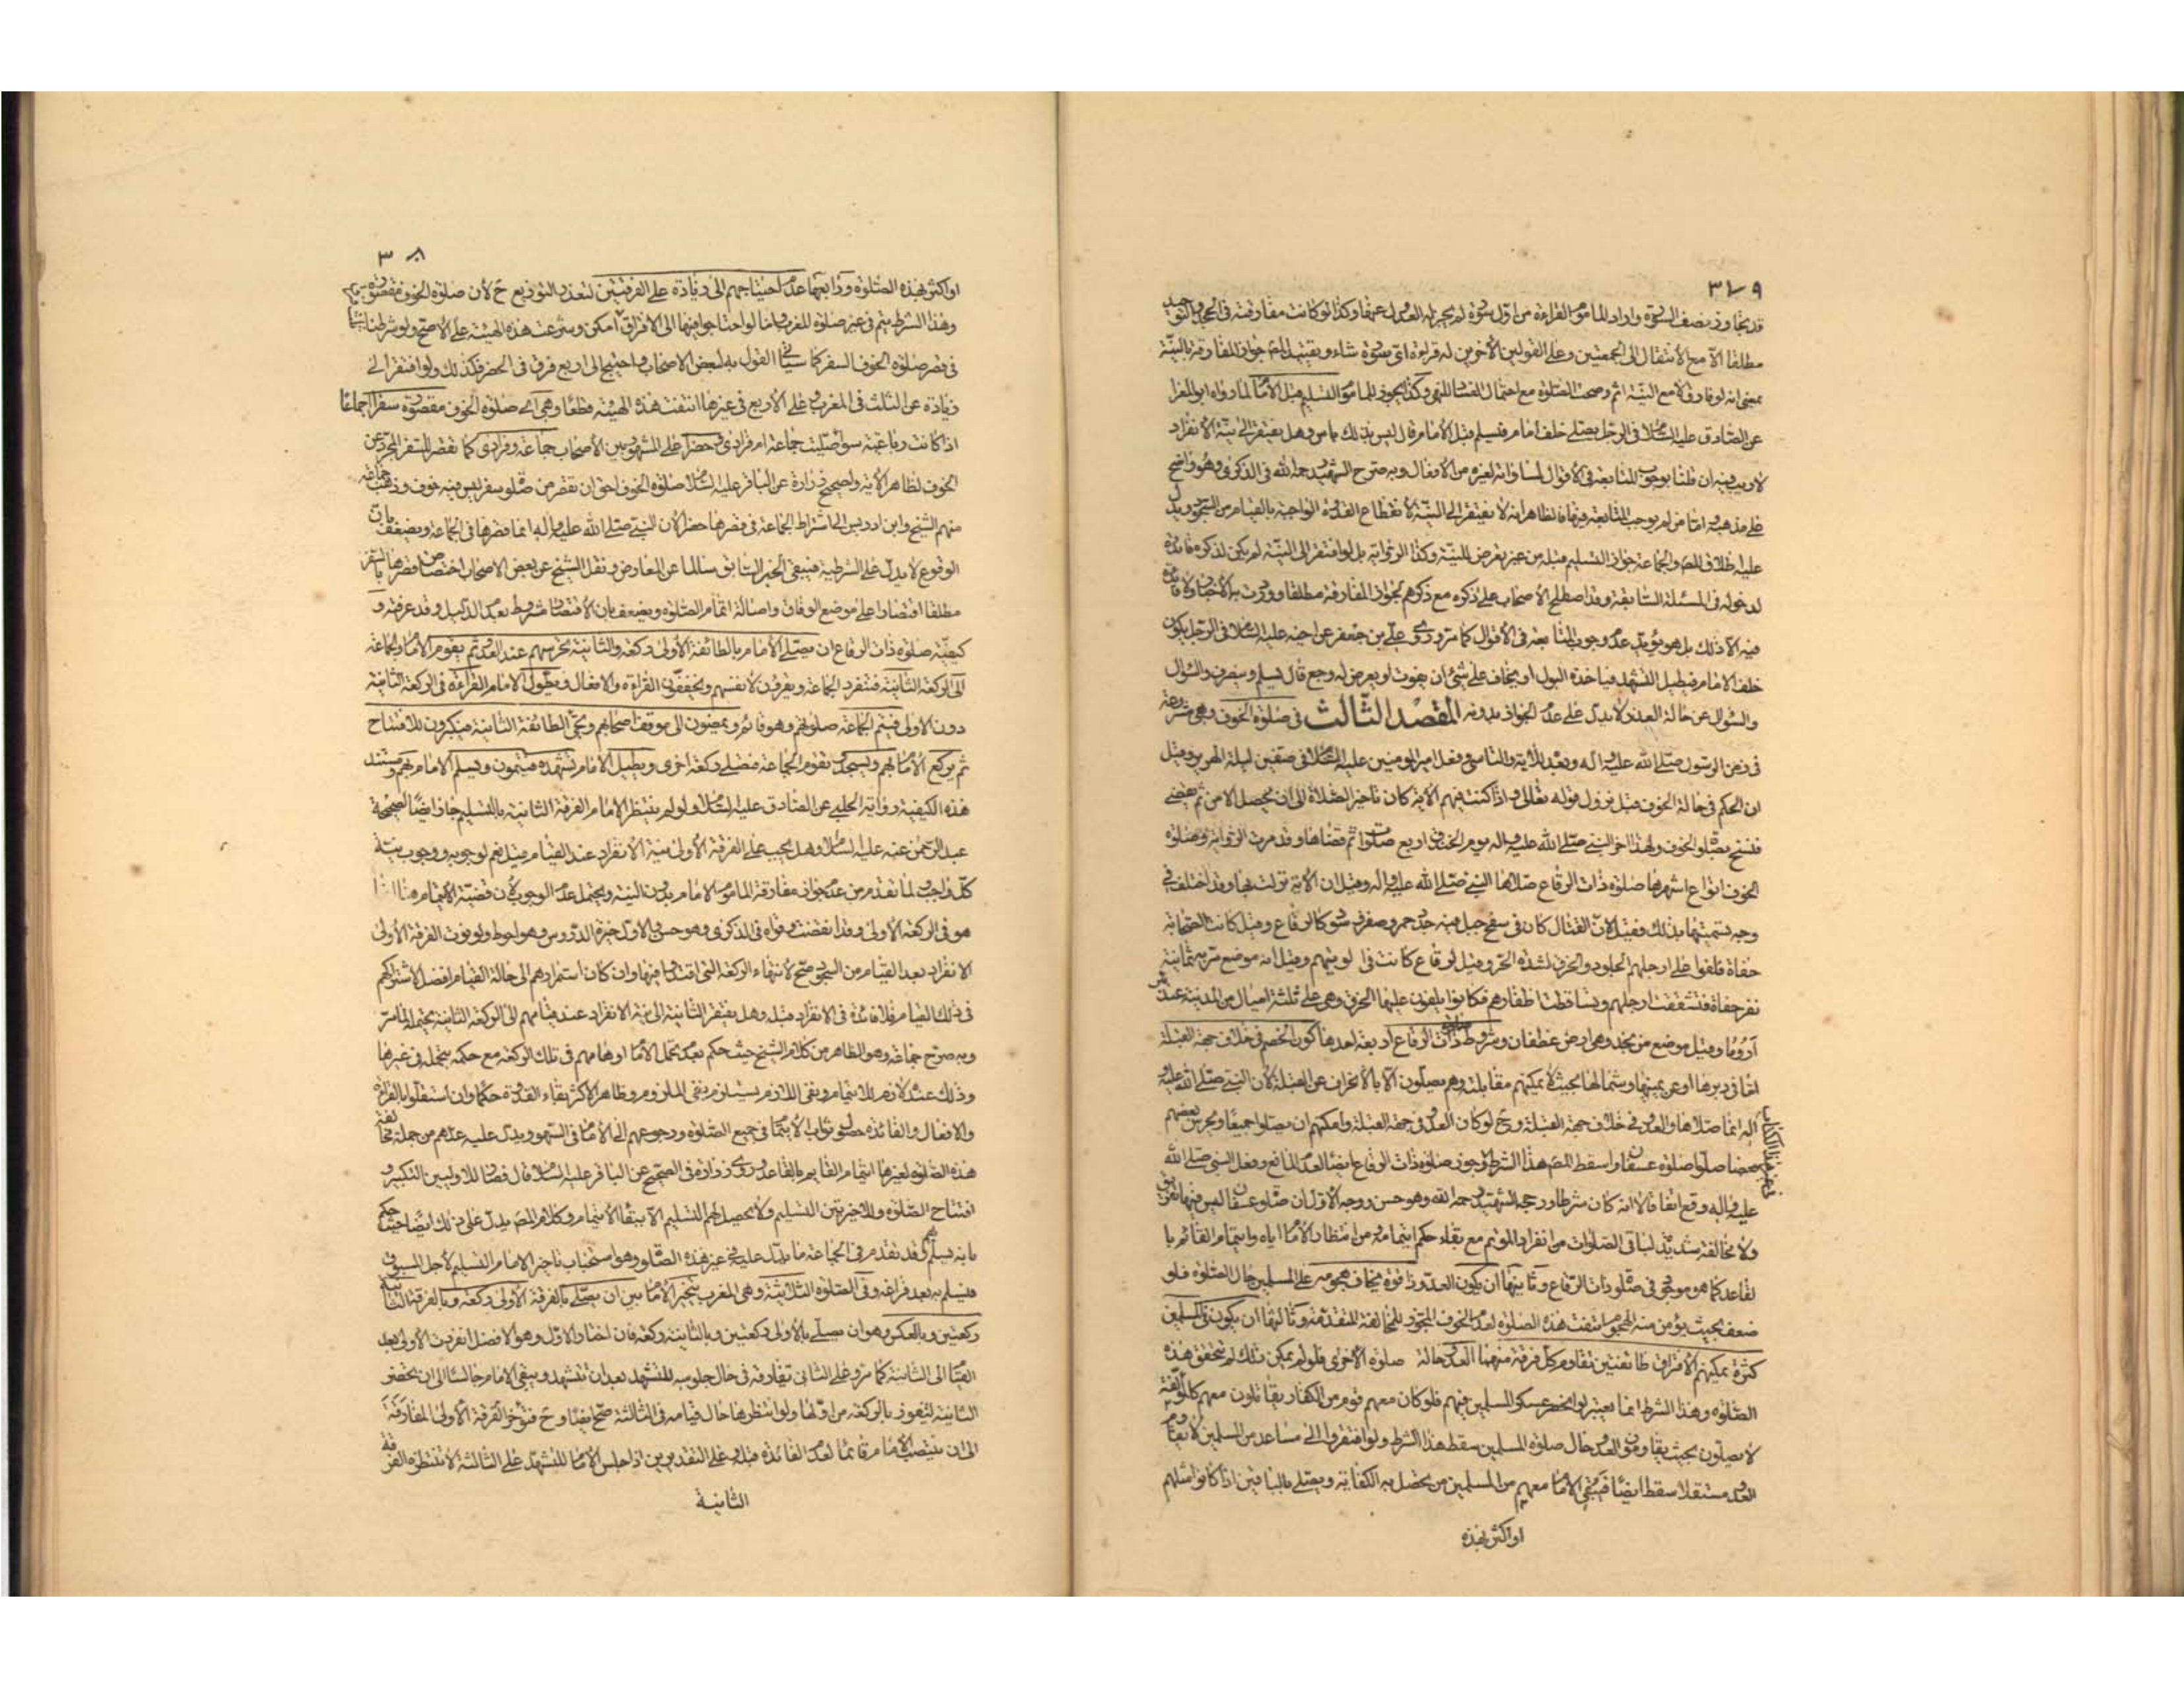 ٣٧٩
قد تجاوز نصف السورة واراد المأموم القراءة من اول سورة لم يجز له العدول عنها وكذا لو كانت مفارقته في الجحد والتوحيد
مطلقا الا مع الانتقال الى الجمعتين وعلى القولين الاخرين له قراءة اى سورة شاء وتقييد المص جواز المفارقة بالنية
بمعنى انه لو فارق لا مع النية اثم وصحت الصلوة مع احتمال الفساد للنهى وكذا يجوز للماموم التسليم قبل الامام لما رواه ابو المعزا
عن الصادق عليه السلام فى الرجل يصلى خلف امام فيسلم قبل الامام قال ليس بذلك باس وهل يفتقر الى نية الانفراد
لا ريب فيه ان قلنا بوجوب المتابعة فى الاقوال لمساواته لغيره من الافعال وبه صرح الشهيد رحمه الله فى الذكرى وهو واضح
على مذهبه واما من لم يوجب المتابعة فيها فالظاهر انه لا يفتقر الى النية لانقطاع القدوة الواجبة بالقيام من السجود ويدل
عليه اطلاق المص والجماعة جواز التسليم قبله من غير تعرض للنية وكذا الرواية بل لو افتقر الى النية لم يكن لذكره فائدة
لدخوله فى المسئلة السابقة وقد اصطلح الاصحاب على ذكره مع ذكرهم لجواز المفارقة مطلقا ووردت به الاخبار ولا فائدة
فيه الا ذلك بل هو يؤيد عدم وجوب المتابعة فى الاقوال كما مر وروى على بن جعفر عن اخيه عليه السلام فى الرجل يكون
خلف الامام فيطيل التشهد فياخذه البول او يخاف على شئ ان يفوت او يعرض له وجع قال يسلم وينصرف والسؤال
والسؤال عن حالة العذر لا يدل على عدم الجواز بدونه المقصد الثالث فى صلوة الخوف وهى مشروعة
فى زمن الرسول صلى الله عليه وآله وبعده للاية والتاسى وفعل امير المومنين عليه السلام فى صفين ليلة الهرير وقيل
ان الحكم فى حالة الخوف قبل نزول قوله تعالى واذا كنت فيهم الاية كان تاخير الصلاة الى ان يحصل الامن ثم يقضى
فنسخ بصلوة الخوف ولهذا اخر النبى صلى الله عليه واله يوم الخندق اربع صلوات ثم قضاها وقد مرت الرواية وصلوة
الخوف انواع اشهرها صلوة ذات الرقاع صلاها النبى صلى الله عليه واله وقيل ان الاية نزلت بها وقد اختلف فى
وجه تسميتها بذلك فقيل لان القتال كان فى سفح جبل فيه جدد حمر وصفر وسود كالرقاع وقيل كانت الصحابة
حفاة فلفوا على ارجلهم الجلود والخرق لشدة الحر وقيل لرقاع كانت فى الويتهم وقيل انه موضع مر به ثمانية
نفر حفاة فتشققت ارجلهم وتساقطت اظفارهم فكانوا يلفون عليها الخرق وهى على ثلثة اميال من المدينة عند بئر
اروما وقيل موضع من نجد وهى ارض غطفان وشروط صلوة ذات الرقاع اربعة احدها كون الخصم فى خلاف جهة القبلة
اما فى دبرها او عن يمينها وشمالها بحيث لا يمكنهم مقابلته وهم يصلون الا بالانحراف عن القبلة لان النبى صلى الله عليه و
اله انما صلاها والعدو فى خلاف جهة القبلة وح لو كان العدو فى جهة القبلة وامكنهم ان يصلوا جميعا ويحرس بعضهم
بعضا صلوا صلوة عسفان واسقط المص هذا الشرط وجوز صلوة ذات الرقاع ايضا لعدم المانع وفعل النبى صلى الله
عليه واله وقع اتفاقا لا انه كان شرطا ورجحه الشهيد رحمه الله وهو حسن ووجه الاول ان صلوة عسفان ليس فيها تفريق
ولا مخالفة شديد لباقى الصلوات من انفراد المؤتم مع بقاء حكم ايتمامه من انتظار الامام اياه وايتمام القائم با
لقاعد كما هو موجود فى صلوة ذات الرقاع وثانيها ان يكون العدو ذا قوة يخاف هجومه على المسلمين حال الصلوة فلو
ضعف بحيث يؤمن منه الهجوم انتفت هذه الصلوة لعدم الخوف المجوز للمخالفة المتقدمة وثالثها ان يكون فى المسلمين
كثرة يمكنهم الافتراق طائفتين تقاوم كل فرقة منهما العدو حالة صلوة الاخرى فلو لم يمكن ذلك لم تتحقق هذه
الصلوة وهذا الشرط انما يعتبر لو انحصر عسكر المسلمين فيهم فلو كان معهم قوم من الكفار يقاتلون معهم كالمؤلفة
لا يصلون بحيث يقاومون العدو حال صلوة المسلمين سقط هذا الشرط ولو افتقروا الى مساعد من المسلمين لا يقاوم
العدو مستقلا سقط ايضا فيبقى الامام معهم من المسلمين من يحصل به الكفاية ويصلى بالباقين اذا كانوا مثلهم
او اكثر بهذه
٣٨٠
او اكثر بهذه الصلوة ورابعها عدم احتياجهم الى زيادة على الفرقتين لتعذر التوزيع ح لان صلوة الخوف مقصورة
وهذا الشرط يتم فى غير صلوة المغرب اما لو احتاجوا فيها الى الافتراق امكن وشرعت هذه الهيئة على الاصح ولو شرطنا
فى قصر صلوة الخوف السفر كما سياتى القول به لبعض الاصحاب واحتيج الى اربع فرق فى الحضر فكذلك ولو افتقر الى
زيادة عن الثلث فى المغرب وعلى الاربع فى غيرها انتفت هذه الهيئة قطعا وهى اى صلوة الخوف مقصورة سفرا اجماعا
اذا كانت رباعية سواء صليت جماعة ام فرادى وحضرا على المشهور بين الاصحاب جماعة وفرادى كما تقصر للسفر المجرد عن
الخوف لظاهر الاية ولصحيح زرارة عن الباقر عليه السلام صلوة الخوف احق ان تقصر من صلوة سفر ليس فيه خوف وذهب جماعة
منهم الشيخ وابن ادريس الى اشتراط الجماعة فى قصرها حضرا لان النبى صلى الله عليه واله انما قصرها فى الجماعة ويضعف بان
الوقوع لا يدل على الشرطية فيبقى الخبر السابق سالما عن المعارض ونقل الشيخ عن بعض الاصحاب اختصاص قصرها بالسفر
مطلقا اقتصارا على موضع الوفاق واصالة اتمام الصلوة ويضعف بان الاقتصار مشروط بعدم الدليل وقد عرفته و
كيفية صلوة ذات الرقاع ان يصلى الامام بالطائفة الاولى ركعة والثانية تحرسهم عند العدو ثم يقوم الامام والجماعة
الى الركعة الثانية فتنفرد الجماعة ويقرؤن لانفسهم ويخففون القراءة والافعال ويطول الامام القراءة فى الركعة الثانية
دون الاولى فيتم الجماعة صلوتهم وهو قائم ويمضون الى موقف اصحابهم وتجئ الطائفة الثانية فيكبرون للافتتاح
ثم يركع الامام بهم ويسجد ويقوم الجماعة فتصلى ركعة اخرى ويطيل الامام تشهده فيتمون ويسلم الامام بهم ومستند
هذه الكيفية رواية الحلبى عن الصادق عليه السلام ولو لم ينتظر الامام الفرقة الثانية بالتسليم جاز ايضا لصحيحة
عبد الرحمن عنه عليه السلام وهل يجب على الفرقة الاولى نية الانفراد عند القيام قيل نعم لوجوبه ووجوب نية
كل واجب لما تقدم من عدم جواز مفارقة الماموم الامام بدون النية ويحتمل عدم الوجوب لان قضية الايتمام هنا انما
هو فى الركعة الاولى وقد انقضت وقواه فى الذكرى وهو حسن والاول خيرة الدروس وهو احوط ولو نوت الفرقة الاولى
الانفراد بعد القيام من السجود صح لانتهاء الركعة التى اقتدوا فيها وان كان استمرارهم الى حالة القيام افضل لاشتراكهم
فى ذلك القيام فلا فائدة فى الانفراد قبله وهل يفتقر الثانية الى نية الانفراد عند قيامهم الى الركعة الثانية يحتمله لما مر
وبه صرح جماعة وهو الظاهر من كلام الشيخ حيث حكم بعدم تحمل الامام اوهامهم فى تلك الركعة مع حكمه بتحمله فى غيرها
وذلك عنده لازم للايتمام ونفى اللازم يستلزم نفى الملزوم وظاهر الاكثر بقاء القدوة حكما وان استقلوا بالقراءة
والافعال والفائدة حصول ثواب الايتمام فى جميع الصلوة ورجوعهم الى الامام فى السهو ويدل عليه عدهم من جملة مخالفة
هذه الصلوة لغيرها ايتمام القايم بالقاعد وروى زرارة فى الصحيح عن الباقر عليه السلام قال فصار للاولين التكبير و
افتتاح الصلوة وللاخرين التسليم ولا يحصل لهم التسليم الا ببقاء الايتمام وكلام المص يدل على ذلك ايضا حيث حكم
بانه يسلم بهم وقد تقدم فى الجماعة ما يدل عليه فى غير هذه الصلوة وهو استحباب تاخير الامام التسليم لاجل المسبوق
فيسلم به بعد فراغه وفى الصلوة الثلاثية وهى المغرب يتخير الامام بين ان يصلى بالفرقة الاولى ركعة وبالفرقة الثانية
ركعتين وبالعكس وهو ان يصلى بالاولى ركعتين وبالثانية ركعة فان اختار الاول وهو الافضل انفردت الاولى بعد
القيام الى الثانية كما مر وعلى الثانى تفارقه فى حال جلوسه للتشهد بعد ان تتشهد ويبقى الامام جالسا الى ان تحضر
الثانية لتفوز بالركعة من اولها ولو انتظرها حال قيامه فى الثالثة صح ايضا وح فتؤخر الفرقة الاولى المفارقة
الى ان ينتصب الامام قائما لعدم الفائدة قبله وعلى التقديرين اذا جلس الامام للتشهد على الثالثة لانتظره الفرقة
الثانية